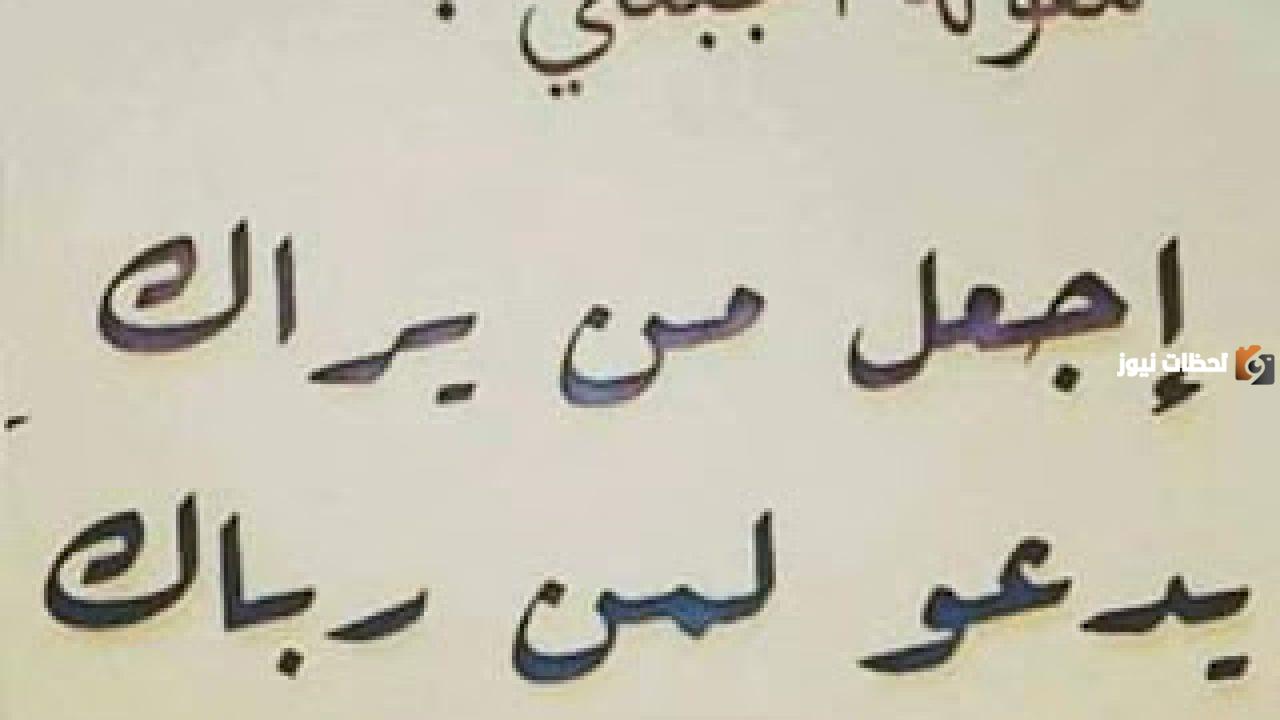 إجعل من يراك
لحظات نيوز
يدعو لمن رباك